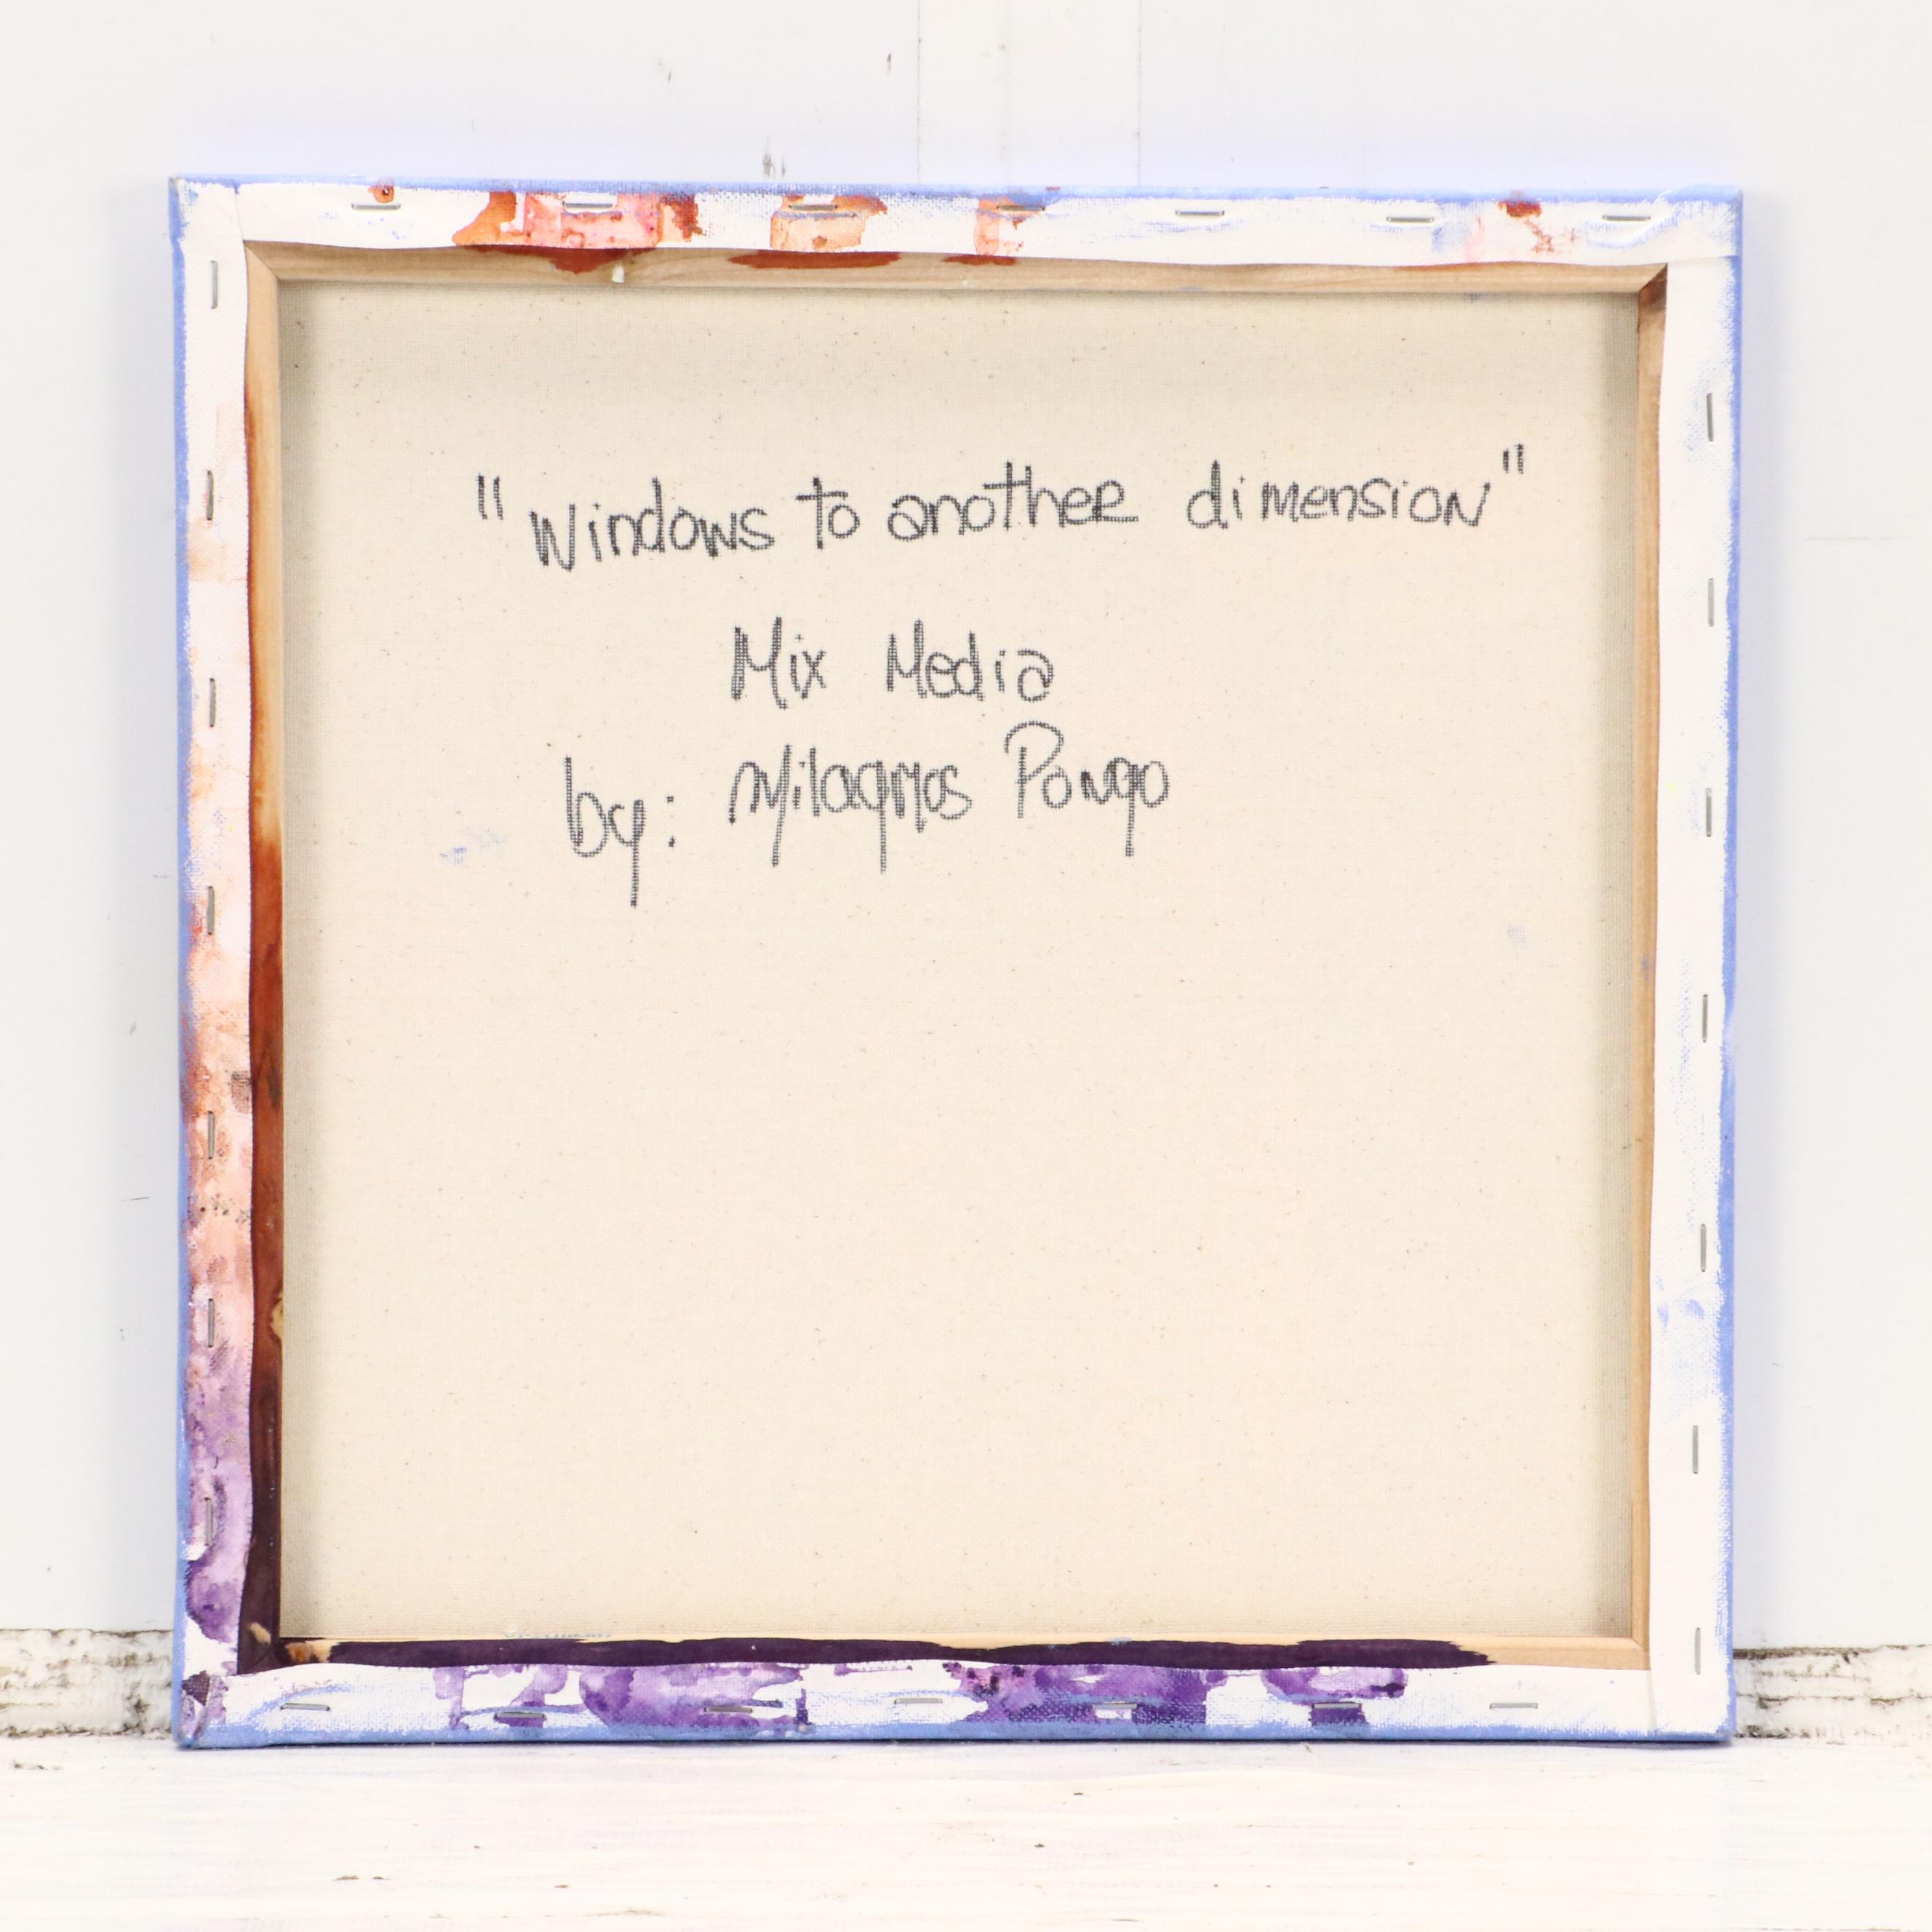 "Windows to another dimension"
Mix Media
by: Milagros Pongo